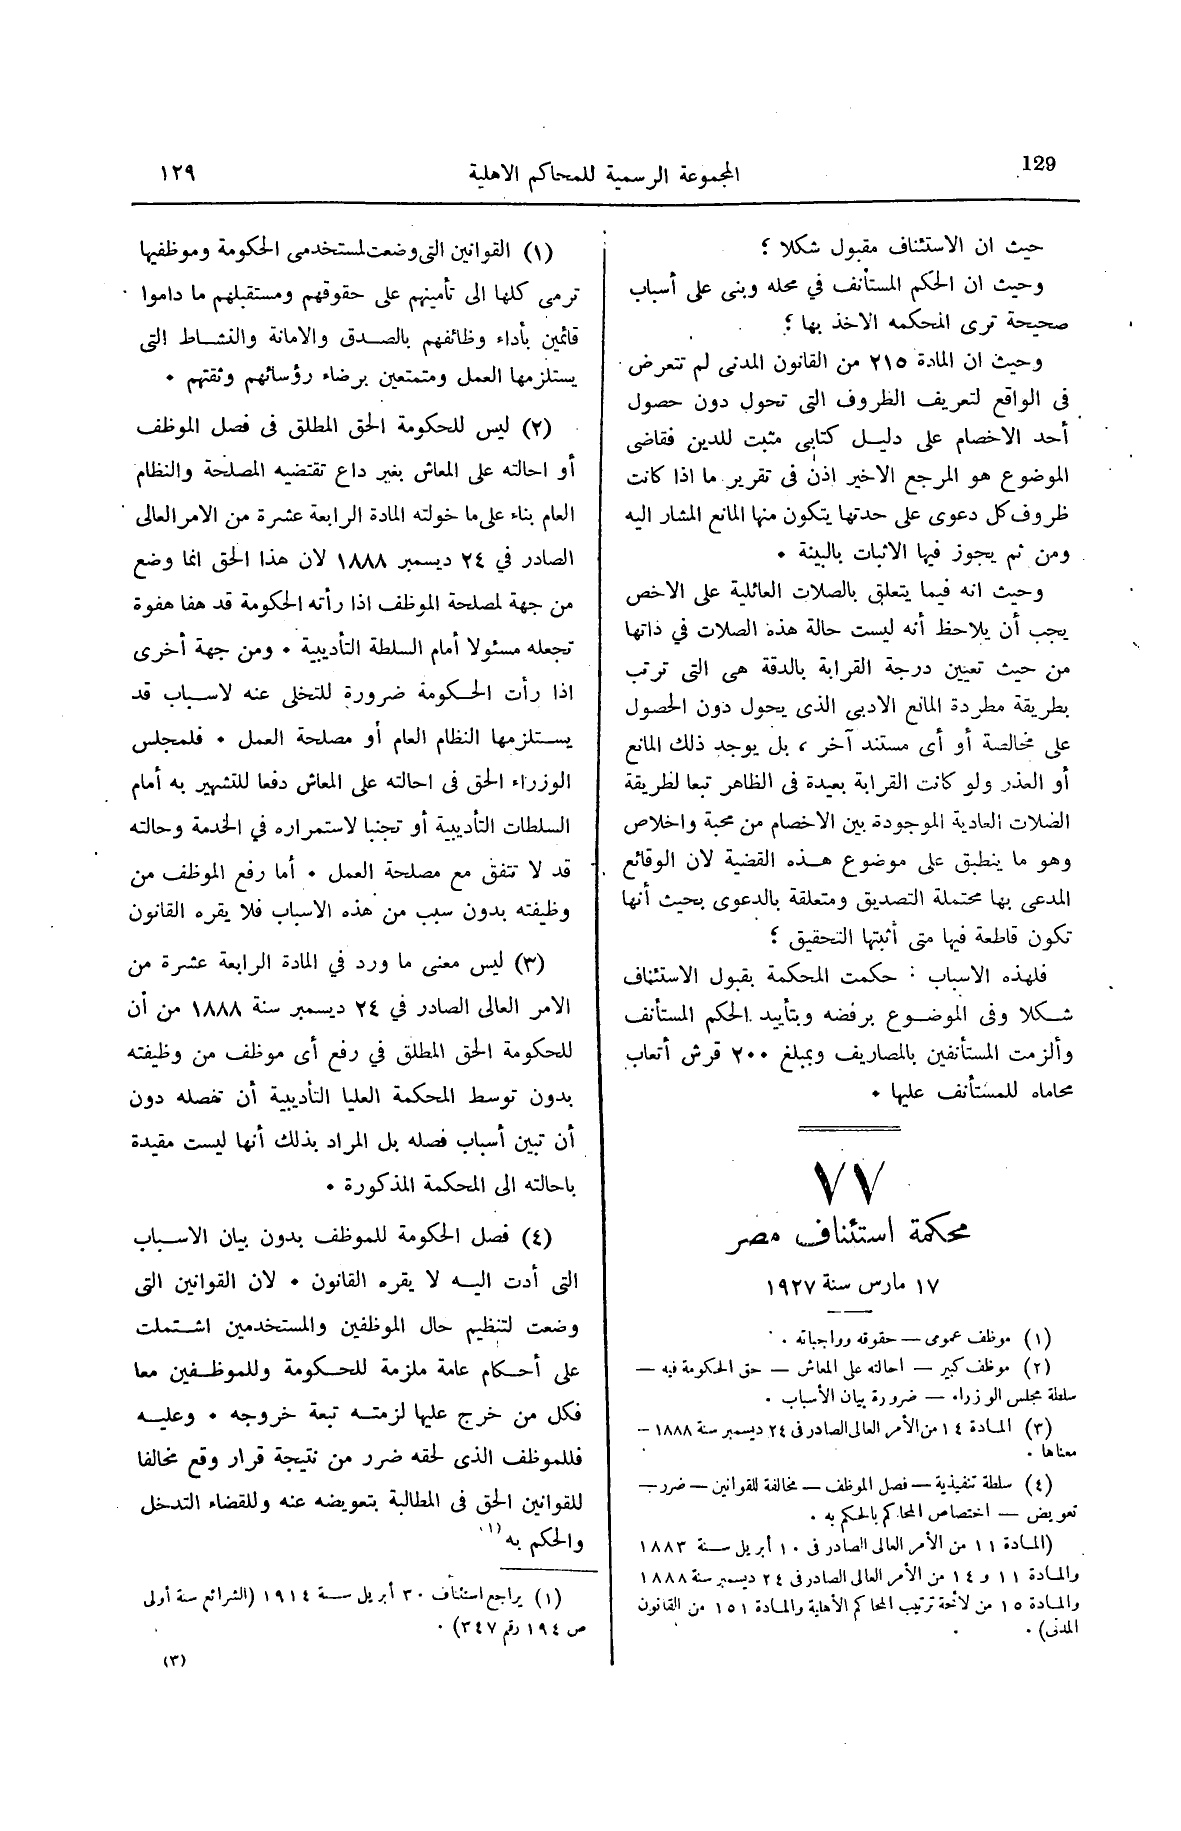 129
المجموعة الرسمية للمحاكم الاهلية
١٢٩
حيث ان الاستئناف مقبول شكلا ؛
وحيث ان الحكم المستأنف في محله وبنى على أسباب
صحيحة ترى المحكمه الاخذ بها ؛
وحيث ان المادة ٢١٥ من القانون المدنى لم تتعرض
فى الواقع لتعريف الظروف التى تحول دون حصول
أحد الاخصام على دليل كتابى مثبت للدين فقاضى
الموضوع هو المرجع الاخير اذن فى تقرير ما اذا كانت
ظروف كل دعوى على حدتها يتكون منها المانع المشار اليه
ومن ثم يجوز فيها الاثبات بالبينة •
وحيث انه فيما يتعلق بالصلات العائلية على الاخص
يجب أن يلاحظ أنه ليست حالة هذه الصلات في ذاتها
من حيث تعيين درجة القرابة بالدقة هى التى ترتب
بطريقة مطردة المانع الادبى الذى يحول دون الحصول
على مخالصة أو أى مستند آخر ، بل يوجد ذلك المانع
أو العذر ولو كانت القرابة بعيدة فى الظاهر تبعا لطريقة
الضلات العادية الموجودة بين الاخصام من محبة واخلاص
وهو ما ينطبق على موضوع هذه القضية لان الوقائع
المدعى بها محتملة التصديق ومتعلقة بالدعوى بحيث أنها
تكون قاطعة فيها متى أثبتها التحقيق ؛
فلهذه الاسباب : حكمت المحكمة بقبول الاستئناف
شكلا وفى الموضوع برفضه وبتأييد الحكم المستأنف
وألزمت المستأنفين بالمصاريف وبمبلغ ٢٠٠ قرش أتعاب
محاماه للمستأنف عليها •
٧٧
محكمة استئناف مصر
١٧ مارس سنة ١٩٢٧
(١) موظف عمومى — حقوقه وواجباته .
(٢) موظف كبير — احالته على المعاش — حق الحكومة فيه —
سلطة مجلس الوزراء — ضرورة بيان الأسباب .
(٣) المادة ١٤ من الأمر العالى الصادر فى ٢٤ ديسمبر سنة ١٨٨٨ —
معناها .
(٤) سلطة تنفيذية — فصل الموظف — مخالفة للقوانين — ضرر —
تعويض — اختصاص المحاكم بالحكم به .
(المادة ١١ من الأمر العالى الصادر فى ١٠ أبريل سنة ١٨٨٣
والمادة ١١ و ١٤ من الأمر العالى الصادر فى ٢٤ ديسمبر سنة ١٨٨٨
والمادة ١٥ من لائحة ترتيب المحاكم الأهلية والمادة ١٥١ من القانون
المدنى) .
(١) القوانين التى وضعت لمستخدمى الحكومة وموظفيها
ترمى كلها الى تأمينهم على حقوقهم ومستقبلهم ما داموا
قائمين بأداء وظائفهم بالصدق والامانة والنشاط التى
يستلزمها العمل ومتمتعين برضاء رؤسائهم وثقتهم •
(٢) ليس للحكومة الحق المطلق فى فصل الموظف
أو احالته على المعاش بغير داع تقتضيه المصلحة والنظام
العام بناء على ما خولته المادة الرابعة عشرة من الامر العالى
الصادر في ٢٤ ديسمبر ١٨٨٨ لان هذا الحق انما وضع
من جهة لمصلحة الموظف اذا رأته الحكومة قد هفا هفوة
تجعله مسئولا أمام السلطة التأديبية • ومن جهة أخرى
اذا رأت الحكومة ضرورة للتخلى عنه لاسباب قد
يستلزمها النظام العام أو مصلحة العمل • فلمجلس
الوزراء الحق فى احالته على المعاش دفعا للتشهير به أمام
السلطات التأديبية أو تجنبا لاستمراره في الخدمة وحالته
قد لا تتفق مع مصلحة العمل • أما رفع الموظف من
وظيفته بدون سبب من هذه الاسباب فلا يقره القانون
(٣) ليس معنى ما ورد في المادة الرابعة عشرة من
الامر العالى الصادر في ٢٤ ديسمبر سنة ١٨٨٨ من أن
للحكومة الحق المطلق في رفع أى موظف من وظيفته
بدون توسط المحكمة العليا التأديبية أن تفصله دون
أن تبين أسباب فصله بل المراد بذلك أنها ليست مقيدة
باحالته الى المحكمة المذكورة •
(٤) فصل الحكومة للموظف بدون بيان الاسباب
التى أدت اليه لا يقره القانون • لان القوانين التى
وضعت لتنظيم حال الموظفين والمستخدمين اشتملت
على أحكام عامة ملزمة للحكومة وللموظفين معا
فكل من خرج عليها لزمته تبعة خروجه • وعليه
فللموظف الذى لحقه ضرر من نتيجة قرار وقع مخالفا
للقوانين الحق فى المطالبة بتعويضه عنه وللقضاء التدخل
والحكم به (١)
(١) يراجع استئناف ٣٠ أبريل سنة ١٩١٤ (الشرائع سنة أولى
ص ١٩٤ رقم ٣٤٧) .
(٣)